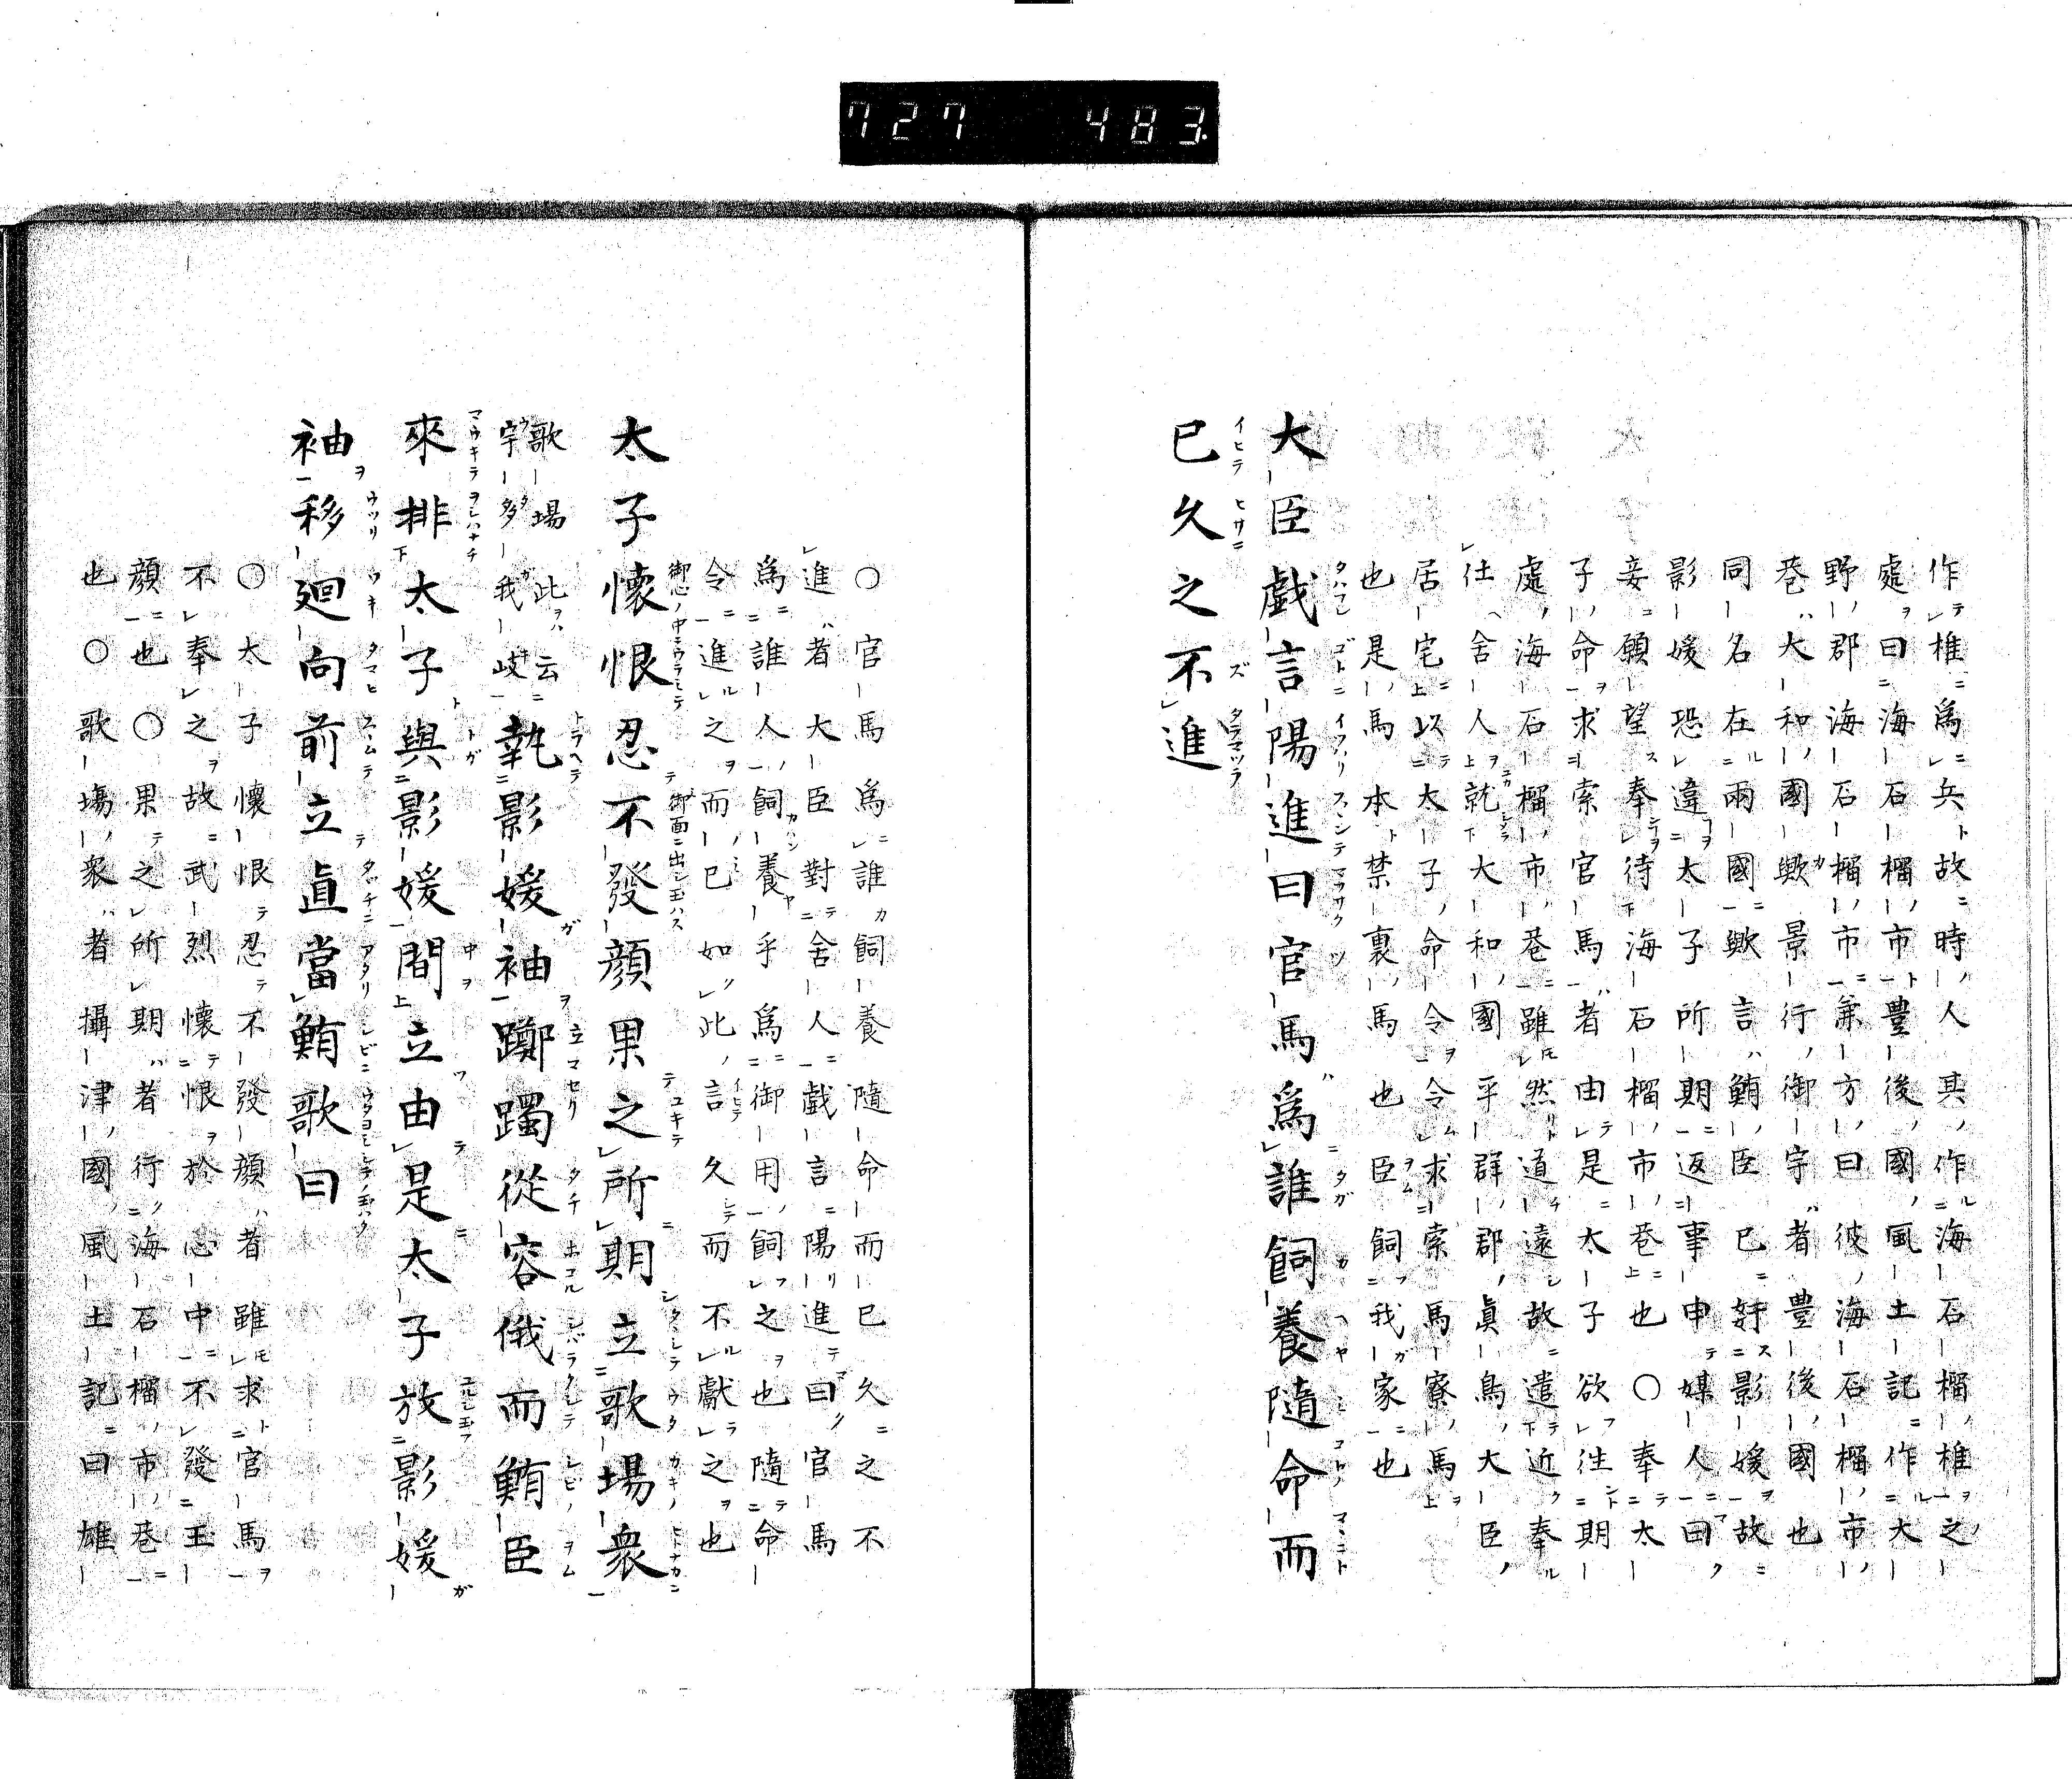 727 483
作椎爲兵故時人其作海石榴椎之
處曰海石榴市豊後國風土記作大
野郡海石榴市第一方曰彼海石榴市
巷大和國歟景行御宇者豊後國也
同名在兩國歟言鮪臣已好影媛故
影媛恐違太子所期返事申媒人曰
妾願望奉待海石榴市巷也〇奉太
子命求索官馬者由是太子欲徃期
處海石榴市巷雖然道遠故遣近奉
仕舍人就大和國平群郡眞鳥大臣
居宅以太子命令令求索馬寮馬
也是馬本禁裏馬也臣飼我家也
大臣戲言陽進曰官馬爲誰飼養隨命而
已久之不進
〇官馬爲誰飼養隨命而已久之不
進者大臣對舍人戲言陽進曰官馬
爲誰人飼養乎爲御用飼之也隨命
令進之而已如此言久而不獻之也
太子懷恨忍不發顔果之所期立歌場衆
歌場此云
宇多我岐執影媛袖躑躅從容俄而鮪臣
來排太子與影媛間立由是太子放影媛
袖移廻向前立直當鮪歌曰
〇太子懷恨忍不發顔者雖求官馬
不奉之故武烈懷恨於心中不發王
顔也〇果之所期者行海石榴市巷
也〇歌場衆者攝津國風土記曰雄